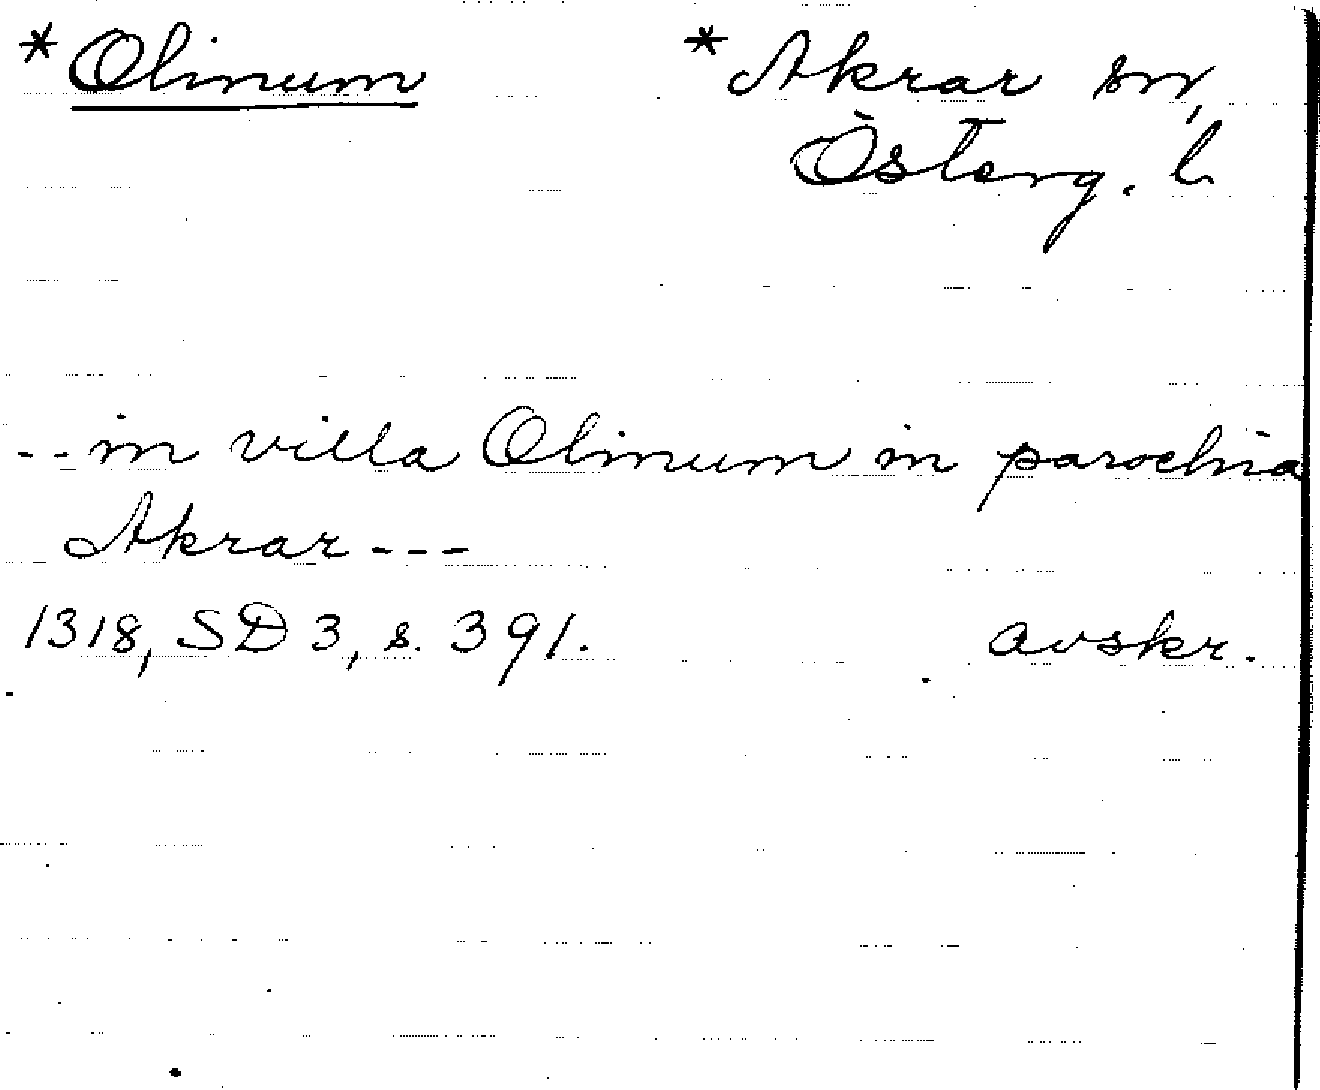 *Olinum *Akrar sn,
Österg. l.
--in villa Olinum in parochia
Akrar---
1318, SD 3, s. 391. avskr.